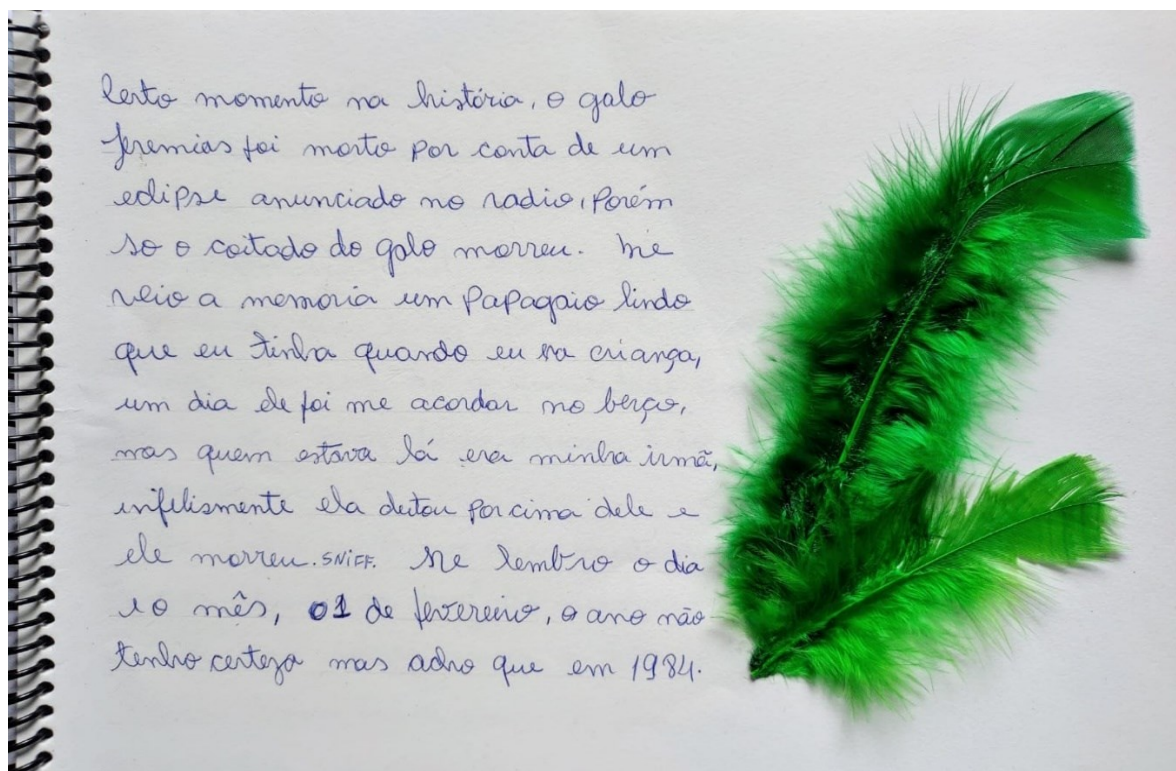 Certo momento na história, o galo
Jeremias foi morto por conta de um
eclipse anunciado no radio, Porém
so o coitado do galo morreu. Me
veio a memoria um Papagaio lindo
que eu tinha quando eu era criança,
um dia ele foi me acordar no berço,
mas quem estava lá era minha irmã,
infelismente ela deitou por cima dele e
ele morreu. SNIFF. Me lembro o dia
e o mês, 01 de fevereiro, o ano não
tenho certeza mas acho que em 1984.